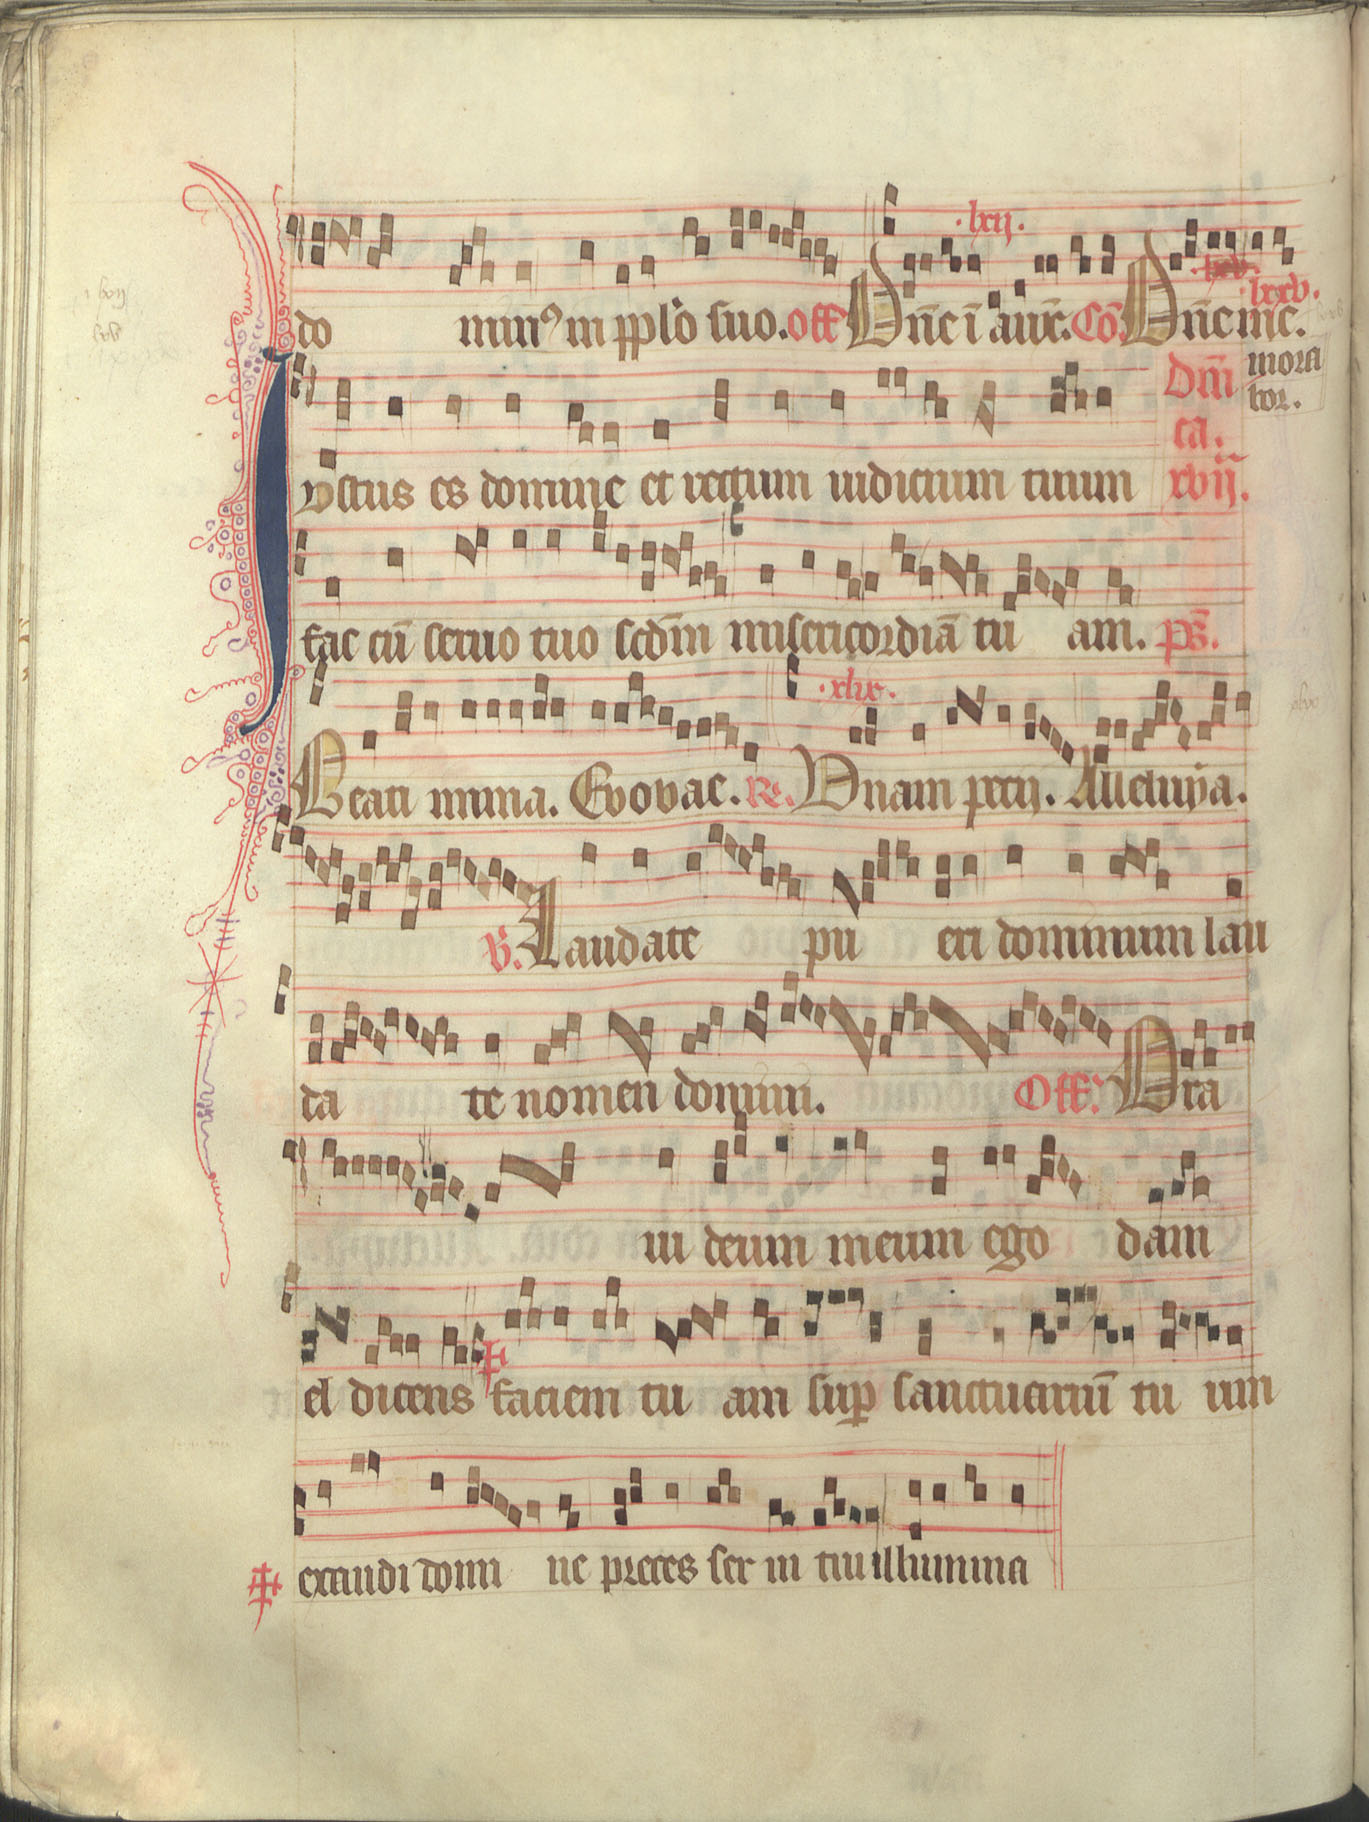 ·lxij·
·lxxv·
do minꝰ in ꝓp̄lo suo. Off Dn̄e ī aux̄. Cō. Dn̄e me
mora
tor.
Dm̄
ca.
xvij.
Iustus es domine et rectum iudicium tuum
fac cū seruo tuo scd̄m misericordiā tu am. p̄s.
·xlix·
Beati inma. Evovae. Re. Unam pecij. Alleluya.
V̄. Laudate pu eri dominum lau
da te nomen domini. Off. Ora
ui deum meum ego dani
el dicens faciem tu am sup̄ sanctuariū tu um
exaudi domi ne preces ser ui tui illumina